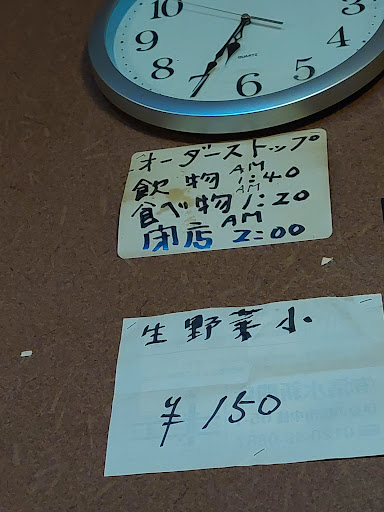 10
9
8
7
6
5
4
3
QUARTZ
オーダーストップ
飲物 AM 1:40
食べ物 AM 1:20
閉店 AM 2:00
生野菜小
¥150